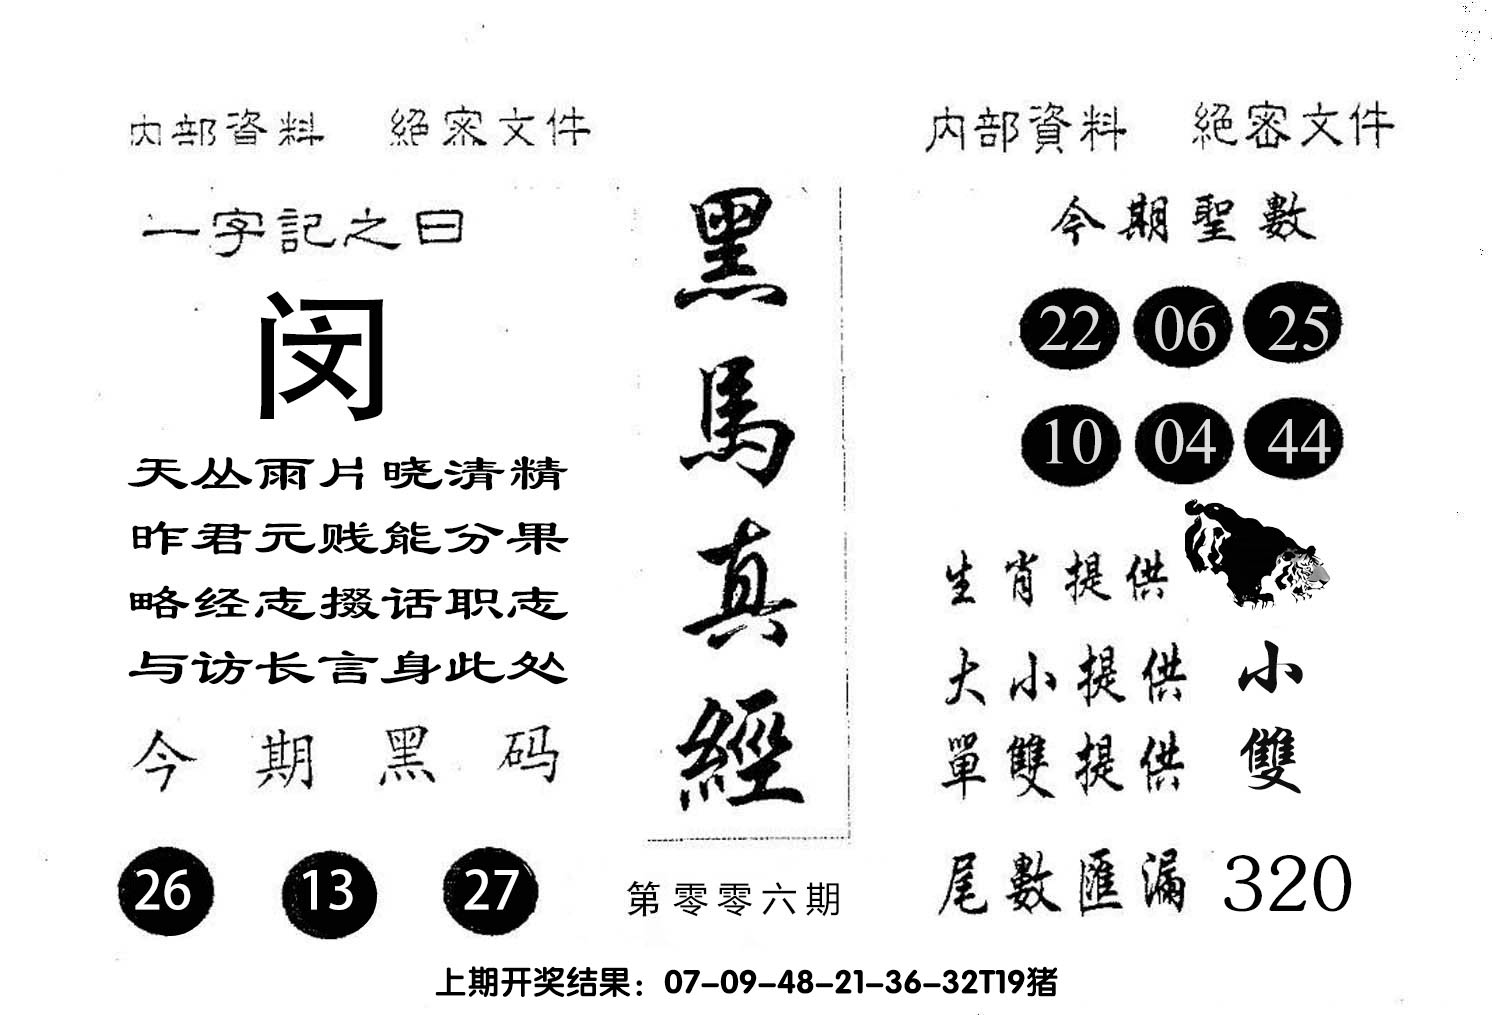 内部資料 絕密文件
一字記之曰
闵
天丛雨片晓清精
昨君元贱能分果
略经志掇话职志
与访长言身此处
今期黑码
26 13 27
黑馬真經
第零零六期
内部資料 絕密文件
今期聖數
22 06 25
10 04 44
生肖提供
大小提供 小
單雙提供 雙
尾數匯漏 320
上期开奖结果：07-09-48-21-36-32T19猪